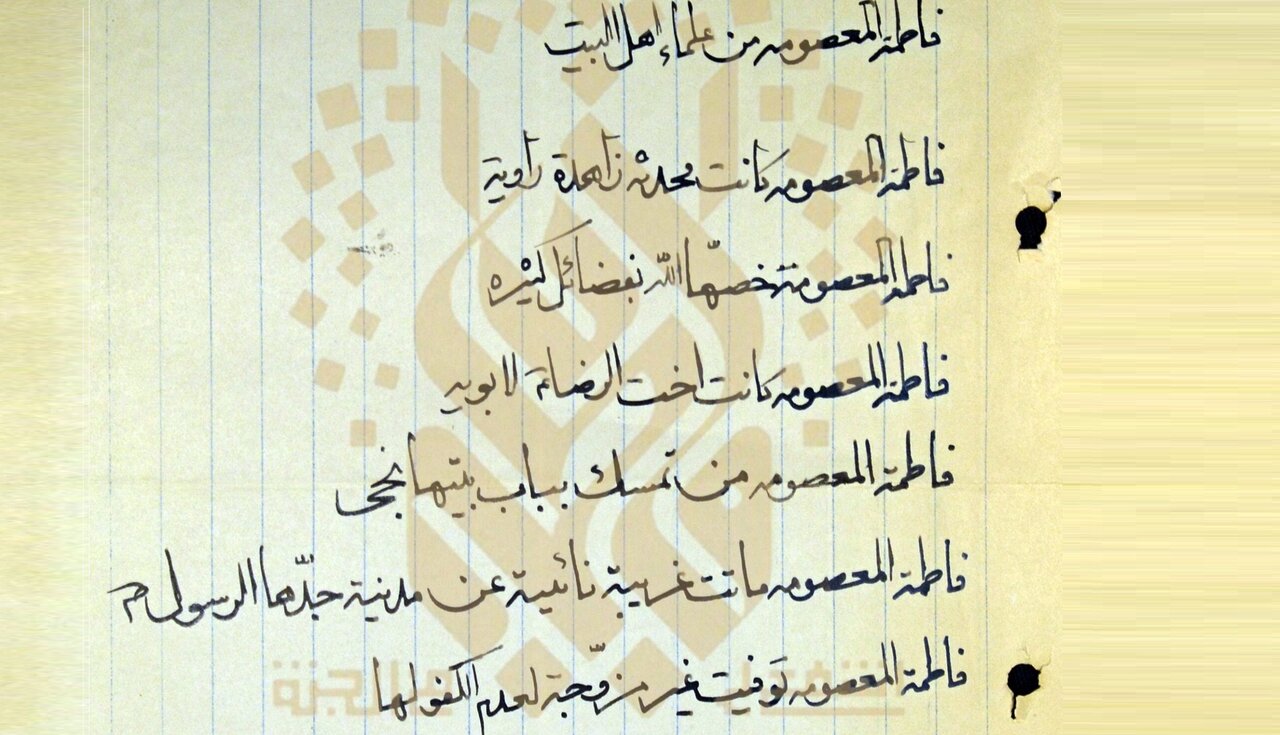 فاطمة المعصومه من علماء اهل البيت
فاطمة المعصومه كانت محدثه زاهدة راوية
فاطمة المعصومة خصهّا اللّه بفضائل كثيره
فاطمة المعصومه كانت اخت الرضاء لابويه
فاطمة المعصومه من تمسك بباب بيتها نجى
فاطمة المعصومه ماتت غريبة نائية عن مدينة جدّها الرسول ص
فاطمة المعصومه توفيت غير مزوّجة لعدم الكفو لها